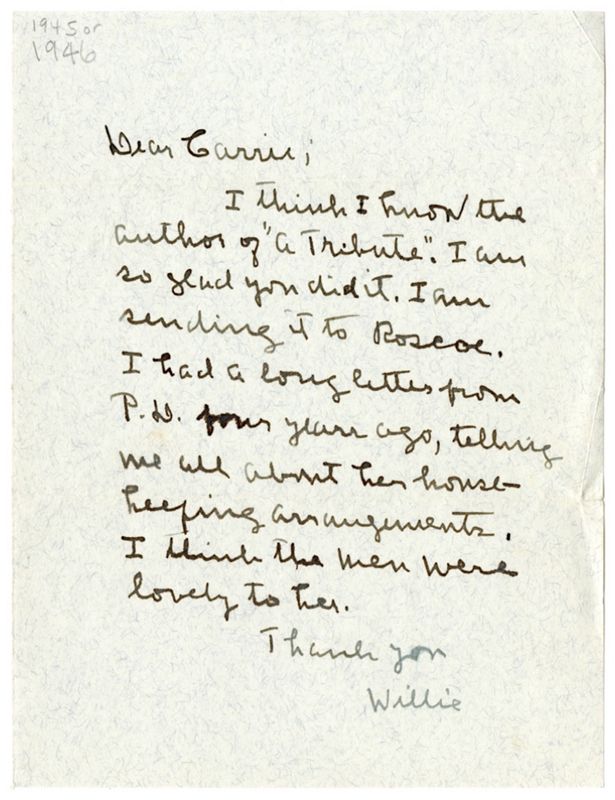 1945 or
1946
Dear Carrie,
I think I know the
author of "A Tribute". I am
so glad you did it. I am
sending it to Roscoe.
I had a long letter from
P.D. four years ago, telling
me all about her house-
keeping arrangements.
I think the men were
lovely to her.
Thank you
Willie